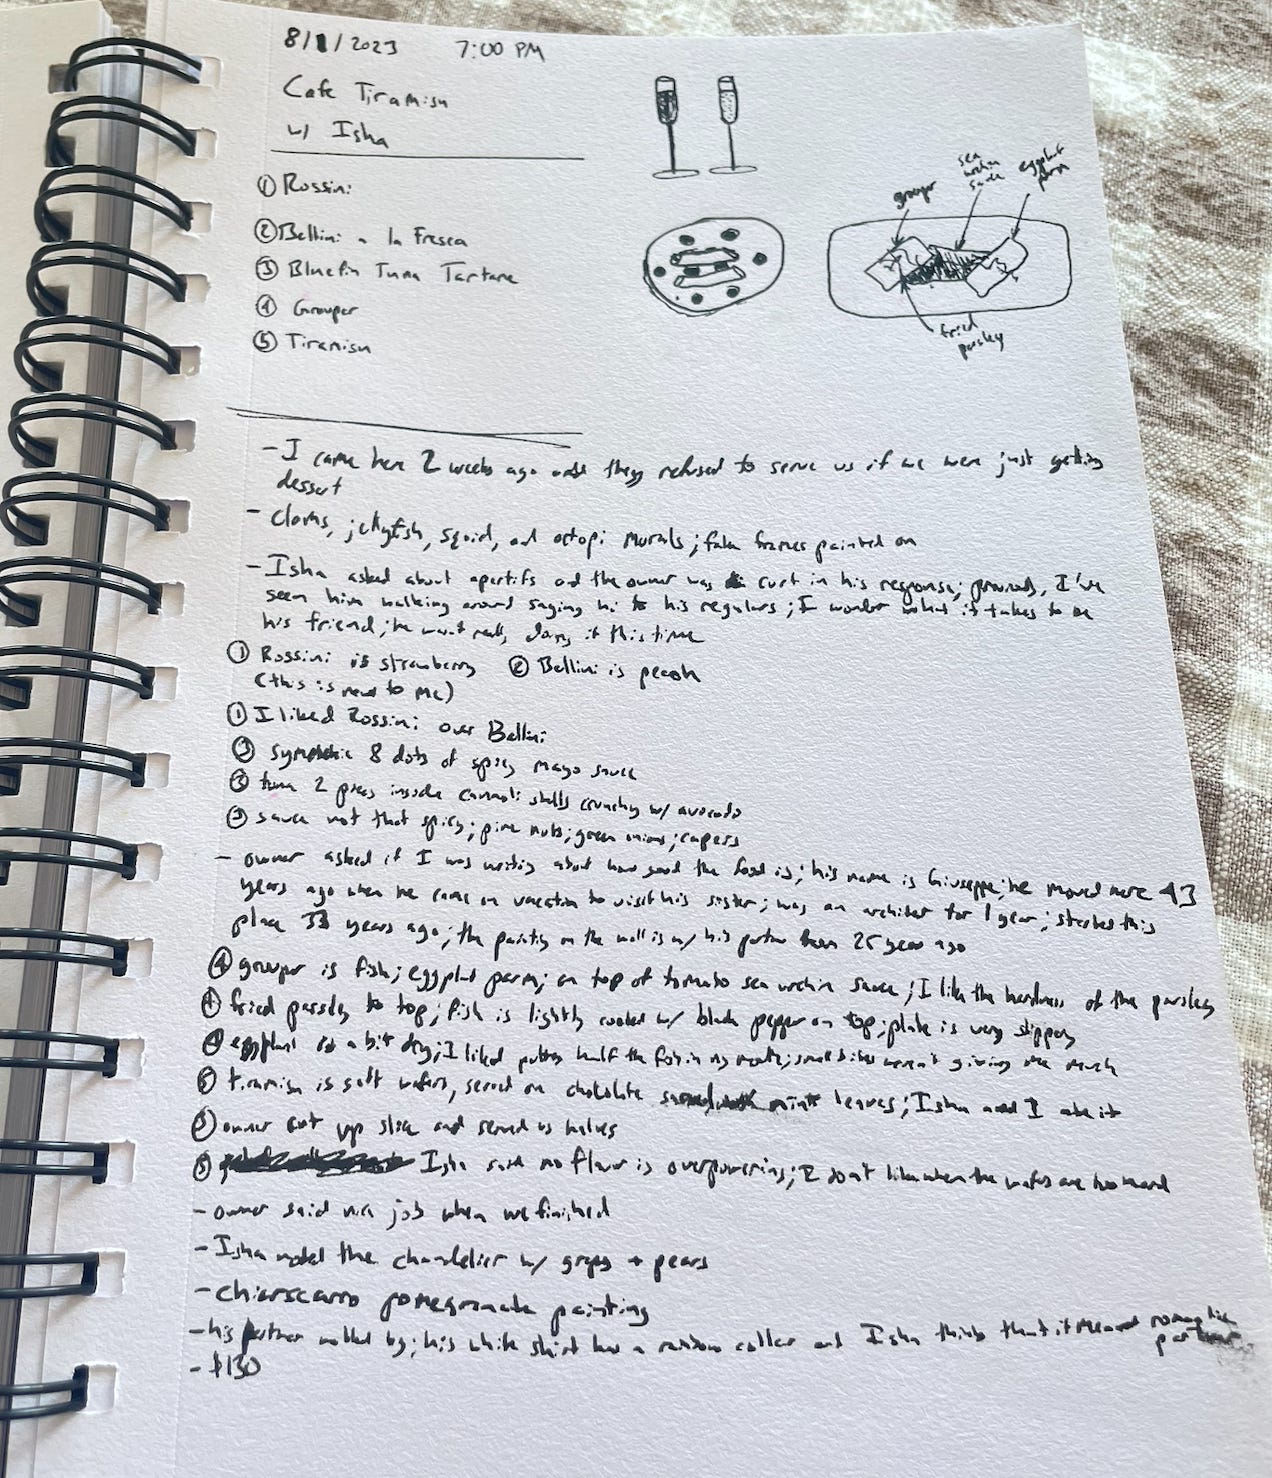 8/1/2023 7:00 PM
Cafe Tiramisu
w/ Isha
① Rossini
② Bellini a la Fresca
③ Bluefin Tuna Tartare
④ Grouper
⑤ Tiramisu
grouper
sea urchin sauce
eggplant parm
fried parsley
- I came here 2 weeks ago and they refused to serve us if we were just getting
dessert
- clams, jellyfish, squid, and octopi murals; fake frames painted on
- Isha asked about apertifs and the owner was curt in his response; I've
seen him walking around saying hi to his regulars; I wonder what it takes to be
his friend; he wasn't really doing it this time
① Rossini is strawberry ② Bellini is peach
(this is new to me)
① I liked Rossini over Bellini
③ 8 dots of spicy mayo sauce
③ tuna 2 pieces inside cannoli shells crunchy w/ avocado
③ sauce not that spicy; pine nuts; green onions; capers
- owner asked if I was writing about how good the food is; his name is Giuseppe; he moved here 43
years ago when he came on vacation to visit his sister; was an architect for 1 year; started this
place 33 years ago; the painting on the wall is w/ his partner from 25 year ago
④ grouper is fish; eggplant parm; on top of tomato sea urchin sauce; I like the hardness of the parsley
④ fried parsley to top; fish is lightly cooked w/ black pepper on top; plate is very slippery
④ eggplant is a bit dry; I liked putting half the fish in my mouth; small bites weren't giving me much
⑤ tiramisu is soft wafers, served on chocolate mint leaves; Isha and I ate it
⑤ owner cut up slice and served us halves
⑤ Isha said no flavor is overpowering; I don't like when the wafers are too hard
- owner said nice job when we finished
- Isha noted the chandelier w/ grapes + pears
- chiarscarro pomegranate painting
- his partner walked by; his white shirt has a rainbow collar and Isha thinks that it meant romantic
partner
- $130